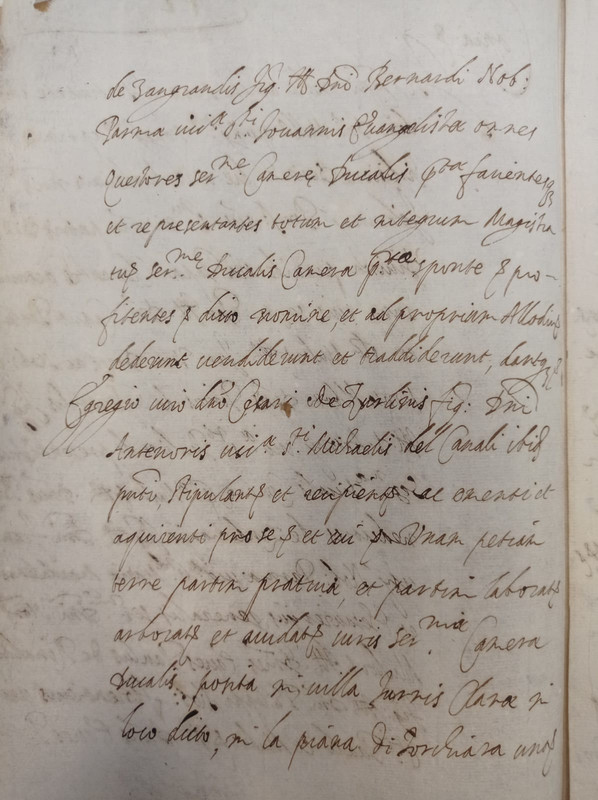 de Zangrandis fiq. M. D. Bernardi Nob:
Parma vic.ª S.ti Jouannis Euangelistæ omnes
Questores ser.me Cameræ Ducalis p.tæ facientes
et representantes totum et integrum Magistra
tus ser.me Ducalis Cameræ p.tæ sponte et pro-
fitentes dicto nomine, et ad proprium Allodium
dederunt uendiderunt et traddiderunt, dantq
Egregio uiro dno Cesari de Zurlinis fiq: Dni
Antenoris vic.ª S.ti Michaelis del Canali ibiq
pnti, stipulanti et recipienti ac ementi et
aquirenti pro se, et cui Unam petiam
terre partim pratiua, et partim laborat
arborat et auidat iuris ser.mæ Cameræ
Ducalis, posita in uilla Turris Claræ in
loco dicto, in la piana di Torchiara una